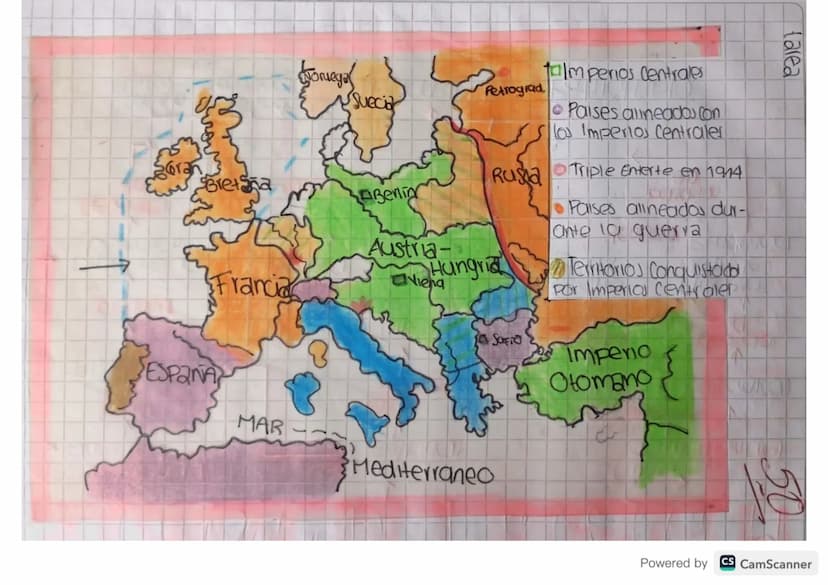 tarea
Noruega
Suecia
Petrograd
Gran
Bretaña
Berlin
Rusia
Austria-
Hungria
Viena
Francia
Sofia
ESPAÑA
Imperio
Otomano
MAR
Mediterraneo
Imperios Centrales
Paises alineados con
los Imperios Centrales
Triple Enterte en 1914
Paises alineados dur-
ante la guerra
Territorios Conquistados
por Imperios Centrales
50
Powered by CS CamScanner